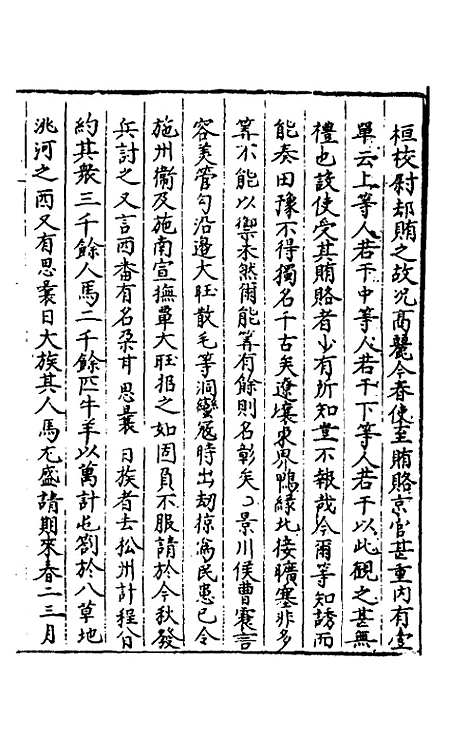 桓校尉却賄之故況高麗今春使至賄賂京官甚重內有堂
單云上等人若干中等人若干下等人若干以此觀之甚無
禮也設使受其賄賂者少有所知豈不報哉今爾等知誘而
能奏田豫不得獨名千古矣遼壤東界鴨綠北接曠塞非多
筭不能以禦未然爾能筭有餘則名彰矣景川侯曹震言
容美管勾沿邊大旺散毛等洞蠻寇時出劫掠為民患已令
施州衛及施南宣撫覃大旺招之如固負不服請於今秋發
兵討之又言西番有名朵甘思曩日族者去松州計程分
約其衆三千餘人馬二千餘匹牛羊以萬計屯劄於八草地
洮河之西又有思曩日大族其人馬尤盛請期來春二三月